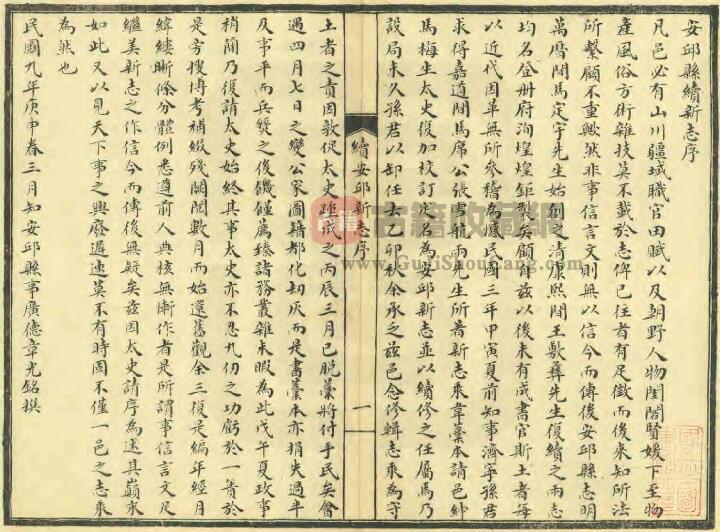 安邱縣續新志序
凡邑必有山川疆域職官田賦以及朝野人物閨閤賢媛下至物
產風俗方術雜技莫不載於志俾已往者有足徵而後來知所法
所繫顧不重歟然非事信言文則無以信今而傳後安邱縣志明
萬曆間馬定宇先生始創之清康熙間王敷彝先生復續之兩志
均名登冊府洵煌煌鉅製矣顧自茲以後未有成書官斯土者每
以近代因革無所參稽為感民國三年甲寅夏前知事濟寧孫君
求得嘉道間馬席公張雪航兩先生所著新志乘韋藁本請邑紳
馬梅生太史復加校訂定名為安邱新志並以續修之任屬馬乃
設局未久孫君以卸任去乙卯秋余承之茲邑念修輯志乘為守
續安邱新志序
一
土者之責因敦促太史踵成之丙辰三月已脫藁將付手民矣會
遇四月七日之變公家圖籍都化劫灰而是書藁本亦損失過半
及事平而兵燹之後饑饉薦臻諸務叢雜未暇為此戊午夏政事
稍簡乃復請太史始終其事太史亦不忍九仞之功虧於一簣於
是旁搜博考補綴殘闕閱數月而始還舊觀余三復是編年經月
緯縷晰條分體例悉遵前人典核無慚作者是所謂事信言文足
繼美新志之作信今而傳後無疑矣茲因太史請序為述其巔末
如此又以見天下事之興廢遲速莫不有時固不僅一邑之志乘
為然也
民國九年庚申春三月知安邱縣事廣德章光銘撰
古籍收藏网
www.GuJiShouCang.com